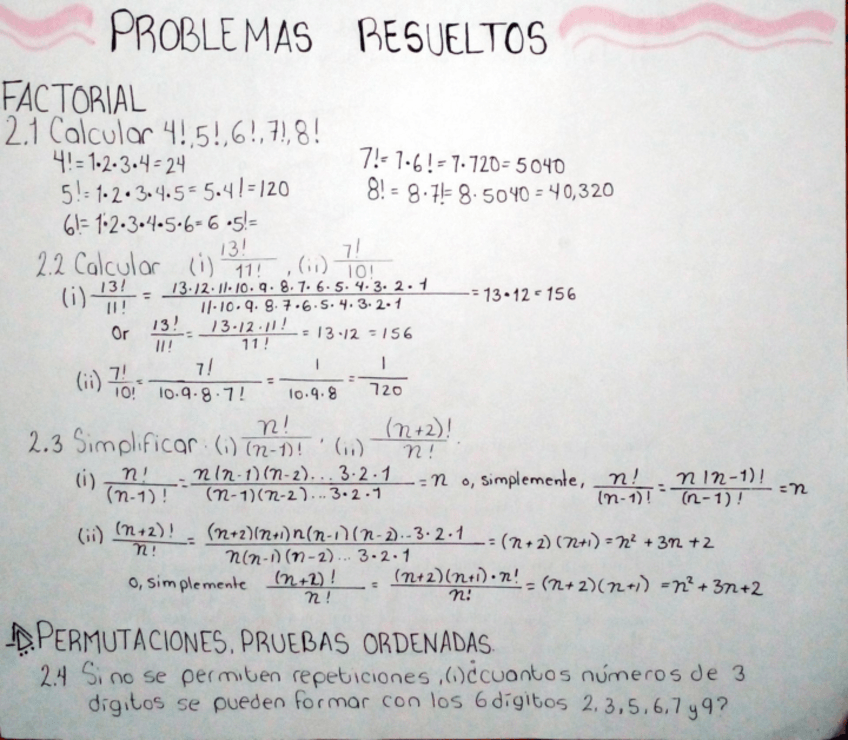 PROBLEMAS RESUELTOS
FACTORIAL
2.1 Calcular 4!,5!,6!,7!,8!
4!=1·2·3·4=24
5!=1·2·3·4·5=5·4!=120
6!=1·2·3·4·5·6=6·5!=
7!=7·6!=7·720=5040
8!=8·7!=8·5040=40,320
2.2 Calcular (i) 13!/11!, (ii) 7!/10!
(i) 13!/11! = 13·12·11·10·9·8·7·6·5·4·3·2·1/11·10·9·8·7·6·5·4·3·2·1 = 13·12=156
Or 13!/11! = 13·12·11!/11! = 13·12=156
(ii) 7!/10! = 7!/10·9·8·7! = 1/10·9·8 = 1/720
2.3 Simplificar. (i) n!/(n-1)! · (ii) (n+2)!/n!.
(i) n!/(n-1)! = n(n-1)(n-2)...3·2·1/(n-1)(n-2)...3·2·1 = n o, simplemente, n!/(n-1)! = n(n-1)!/(n-1)! = n
(ii) (n+2)!/n! = (n+2)(n+1)n(n-1)(n-2)...3·2·1/n(n-1)(n-2)...3·2·1 = (n+2)(n+1)=n²+3n+2
o, simplemente (n+2)!/n! = (n+2)(n+1)·n!/n! = (n+2)(n+1)=n²+3n+2
PERMUTACIONES, PRUEBAS ORDENADAS.
2.4 Si no se permiten repeticiones,(i)¿cuantos números de 3
dígitos se pueden formar con los 6 dígitos 2,3,5,6,7 y 9?